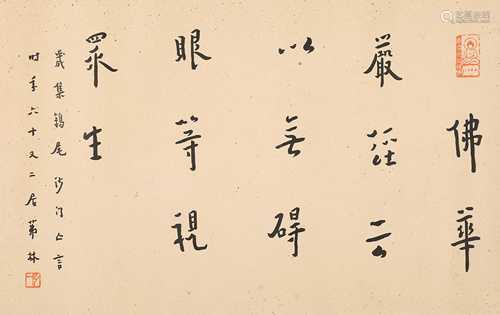 佛華
嚴經云
以無碍
眼等視
眾生
歲集鶉尾沙门亡言
时年六十又二居茀林